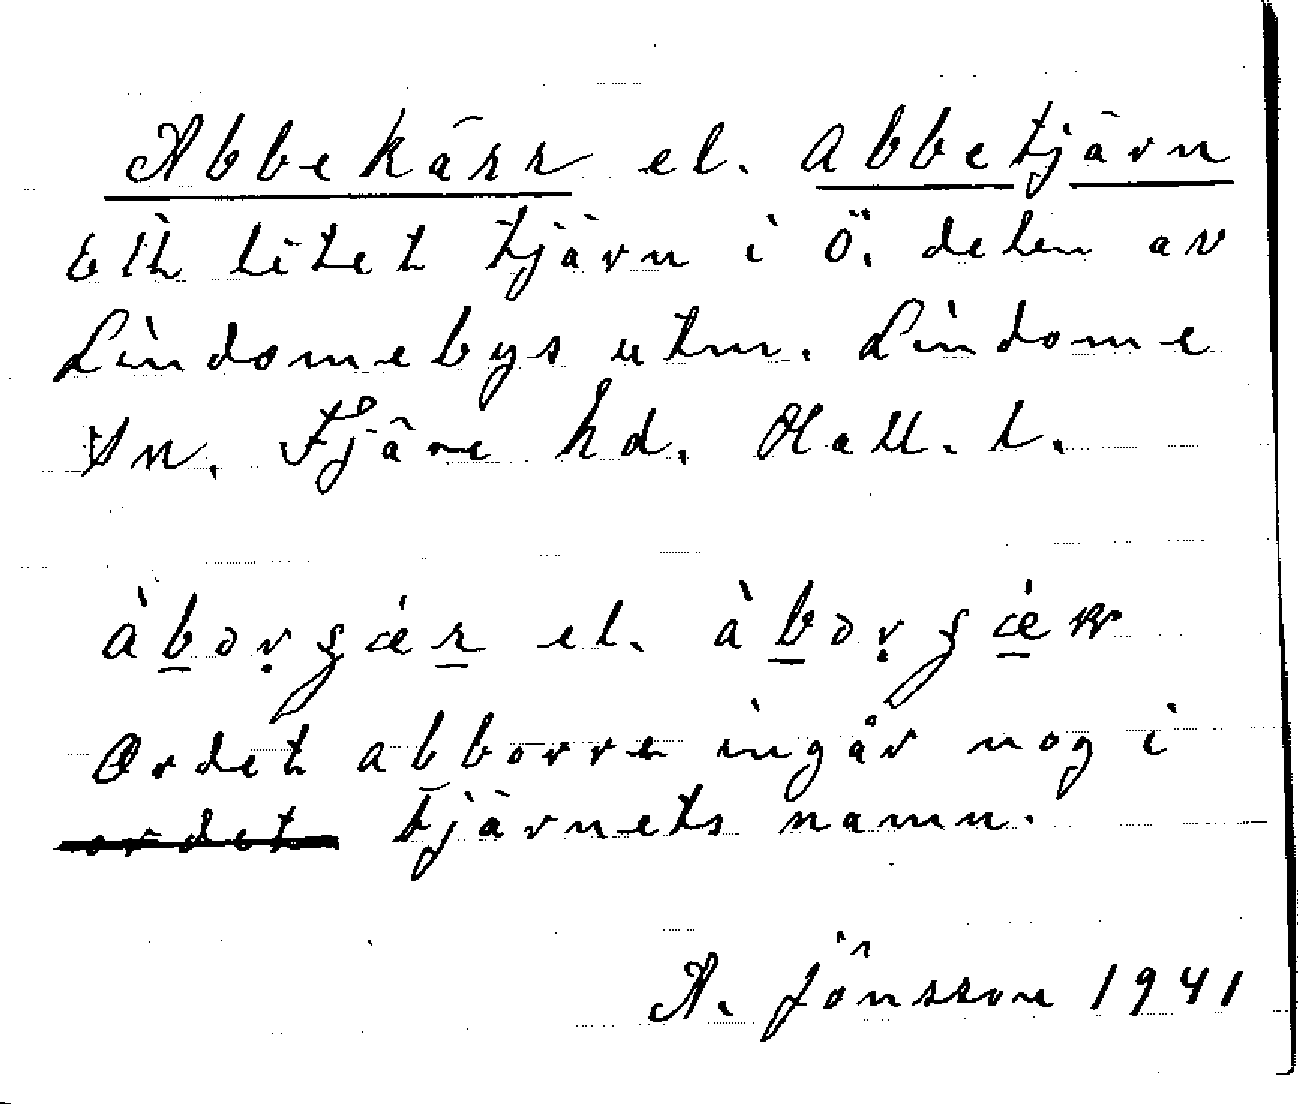 Abbekärr el. Abbetjärn
Ett litet tjärn i Ö. delen av
Lindomebys utm. Lindome
sn. Fjäre hd. Hall. l.
àborgǽr el. àborgǽr
Ordet abborre ingår nog i
ordet tjärnets namn.
A. Jönsson 1941